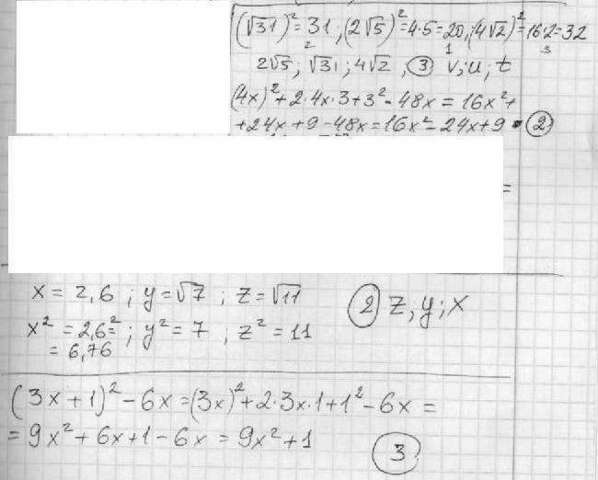 (√31)² = 31 ; (2√5)² = 4·5 = 20, (4√2)² = 16·2 = 32
2 1 3
2√5 ; √31 ; 4√2 , ③ v; u; t
(4x)² + 2·4x·3 + 3² - 48x = 16x² +
+24x + 9 - 48x = 16x² - 24x + 9 ②
=
x = 2,6 ; y = √7 ; z = √11 ② z, y; x
x² = 2,6² = ; y² = 7 ; z² = 11
= 6,76
(3x + 1)² - 6x = (3x)² + 2·3x·1 + 1² - 6x =
= 9x² + 6x + 1 - 6x = 9x² + 1
③